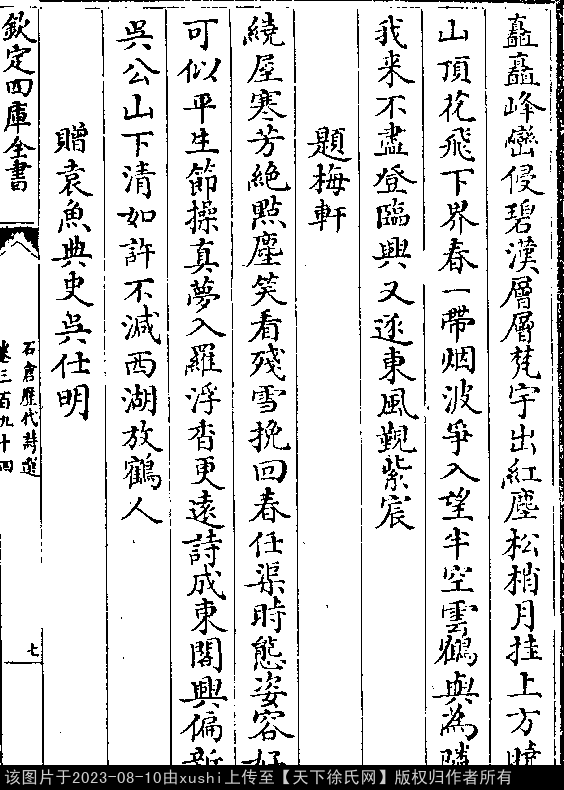 矗矗峰巒侵碧漢層層梵宇出紅塵松梢月挂上方曉
山頂花飛下界春一帶烟波爭入望半空雲鶴與為隣
我来不盡登臨興又逐東風覲紫宸
題梅軒
繞屋寒芳絶點塵笑看殘雪挽回春任渠時態姿容好
可似平生節操真夢入羅浮杳更遠詩成東閣興偏新
吳公山下清如許不減西湖放鶴人
贈袁魚典史吳仕明
欽定四庫全書
石倉歷代詩選
卷三百九十四
七
该图片于2023-08-10由xushi上传至【天下徐氏网】版权归作者所有